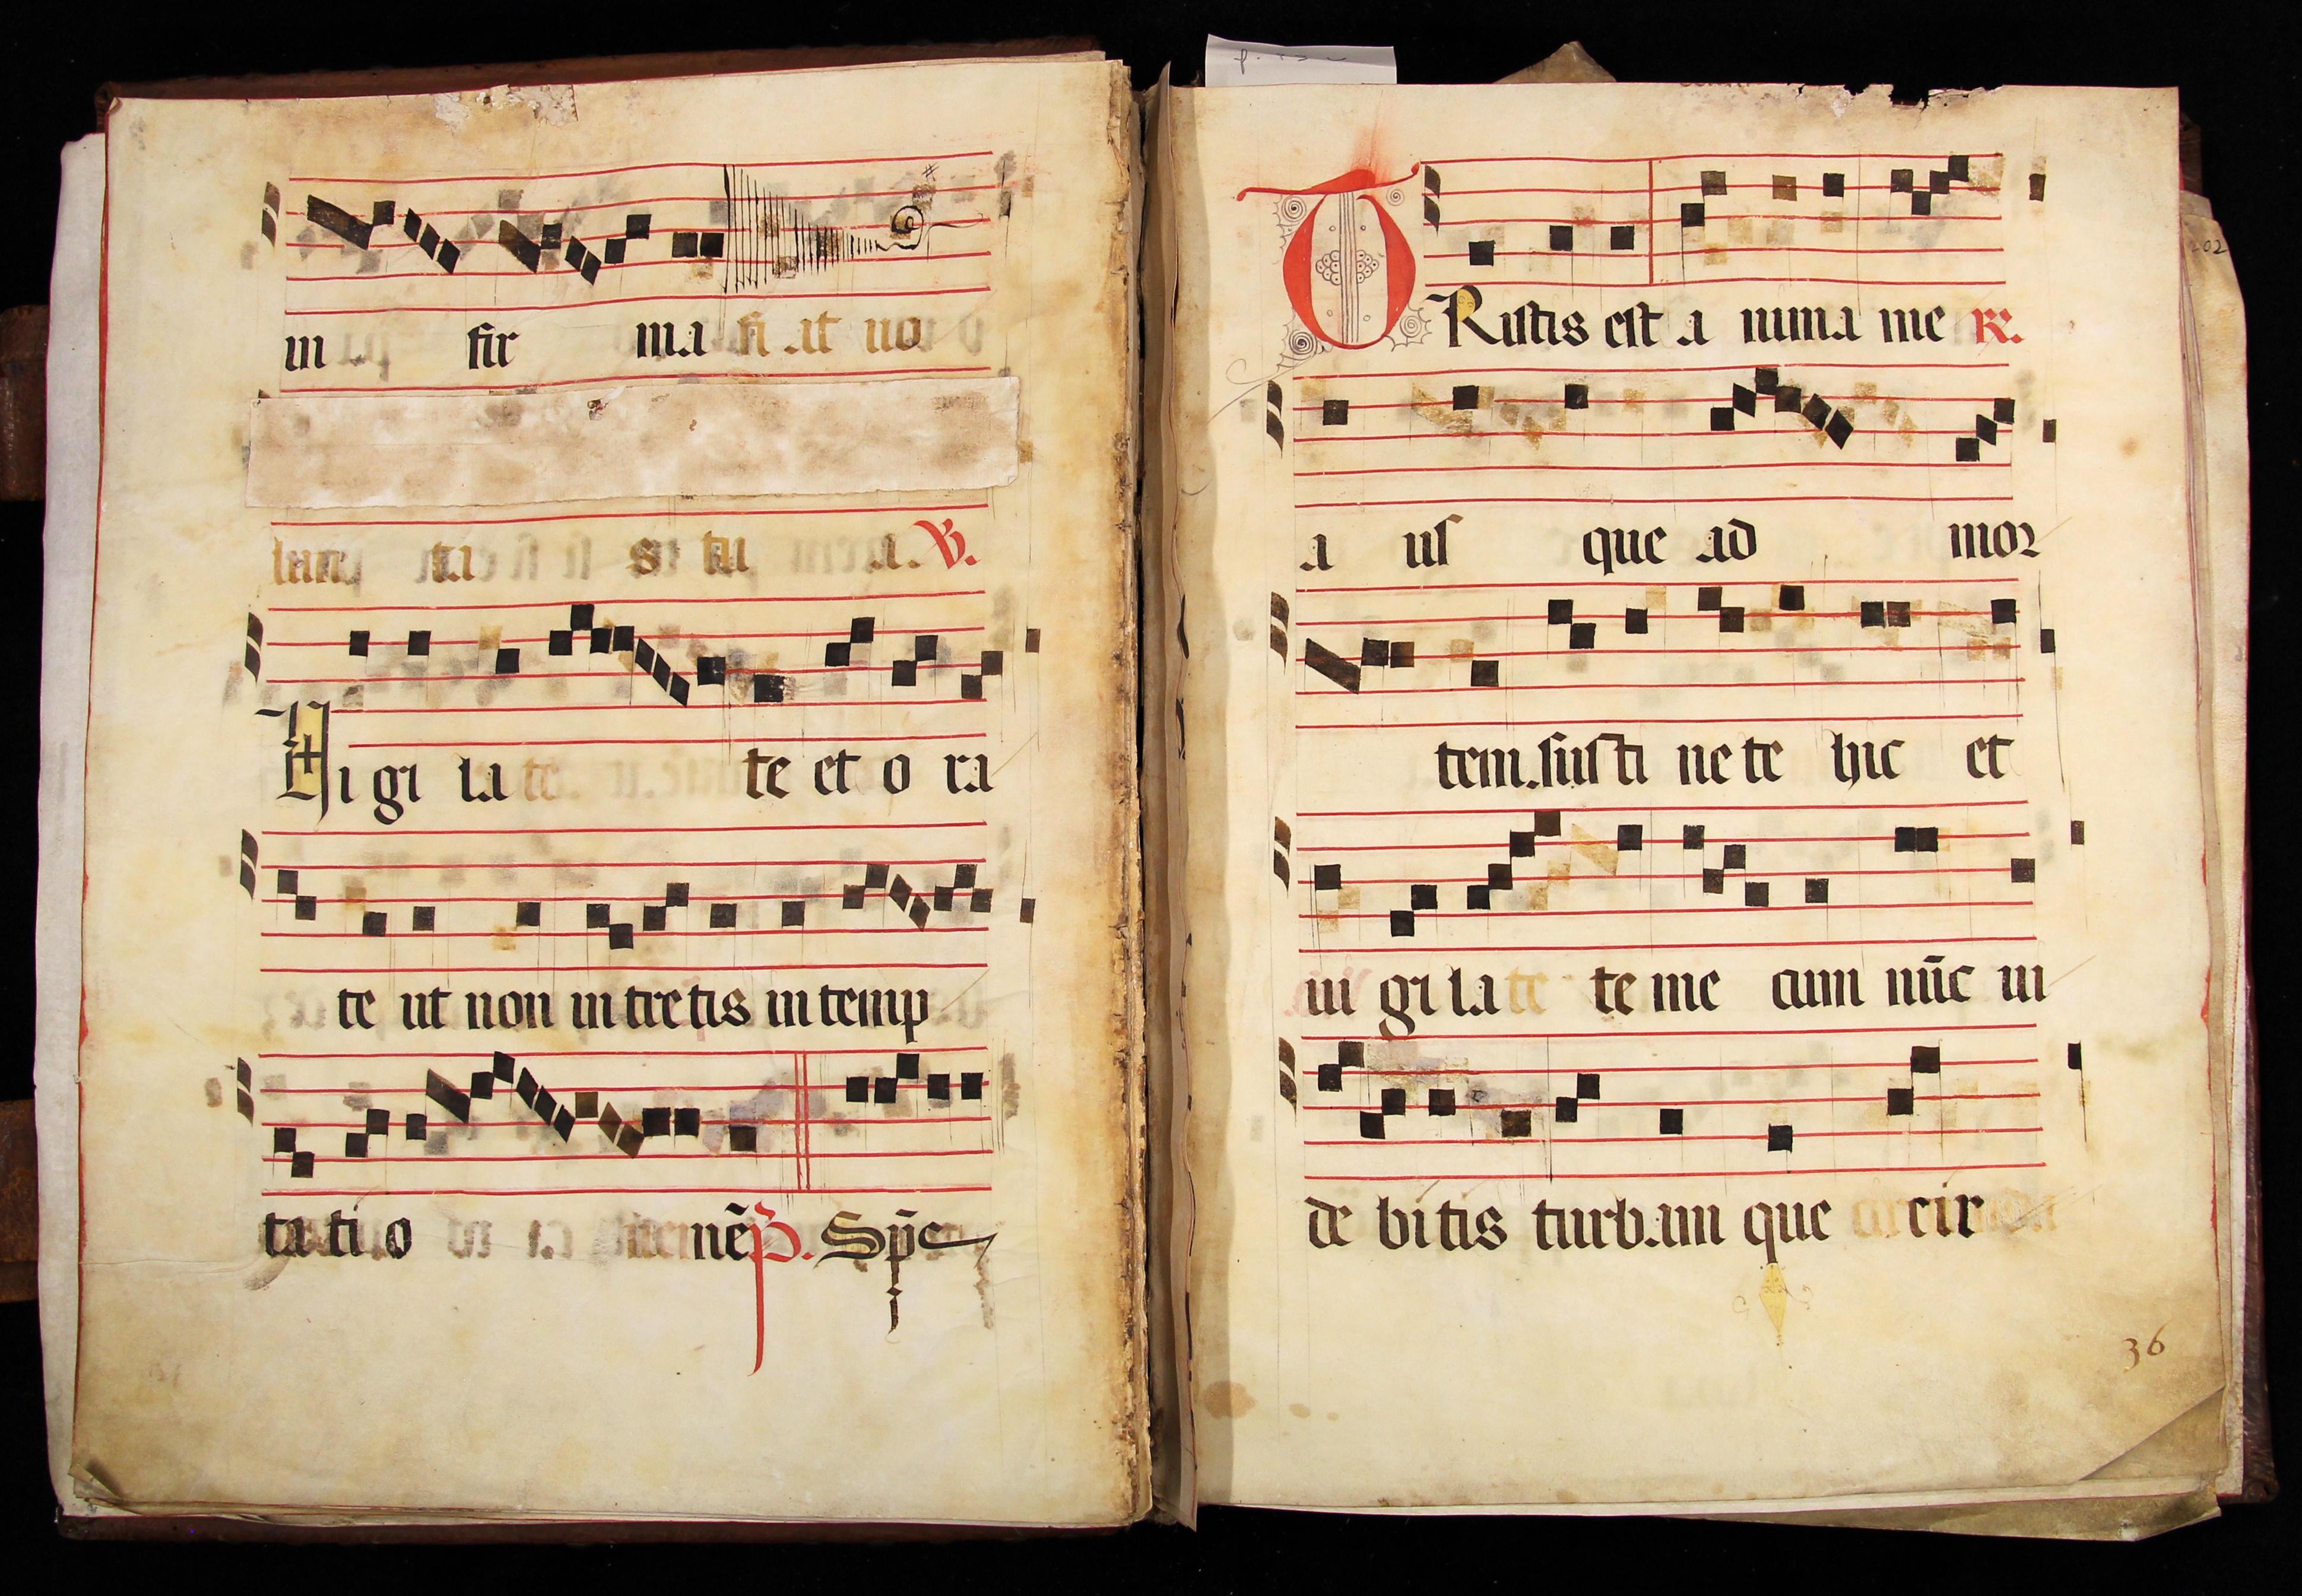 in fir ma fi at uo
lun ta s tu a. V.
Vi gi la te te et o ra
te ut non in tre tis in temp
ta ti o nē p. Spe
TRistis est a nima me R.
a us que ad mor
tem. susti ne te hic et
ui gi la te te me cum nūc ui
de bi tis turbam que cir
36
202